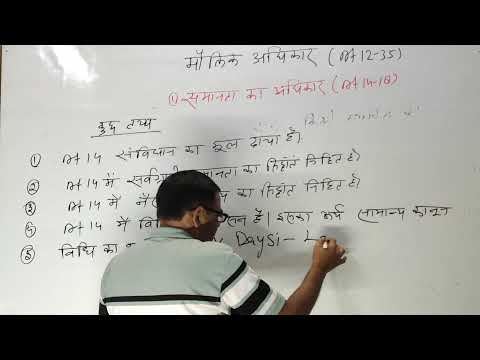 मौलिक अधिकार (Art 12-35)
① समानता का अधिकार (Art 14-18)
कुछ तथ्य
① Art 14 संविधान का मूल ढांचा है।
② Art 14 में समानता का सिद्धांत निहित है।
③ Art 14 में का सिद्धांत निहित है।
④ Art 14 में है। इसका अर्थ सामान्य कानून
⑤ विधि का Daysi-